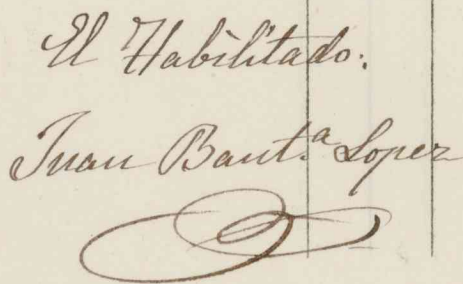 El Habilitado.
Juan Baut.ª Lopez